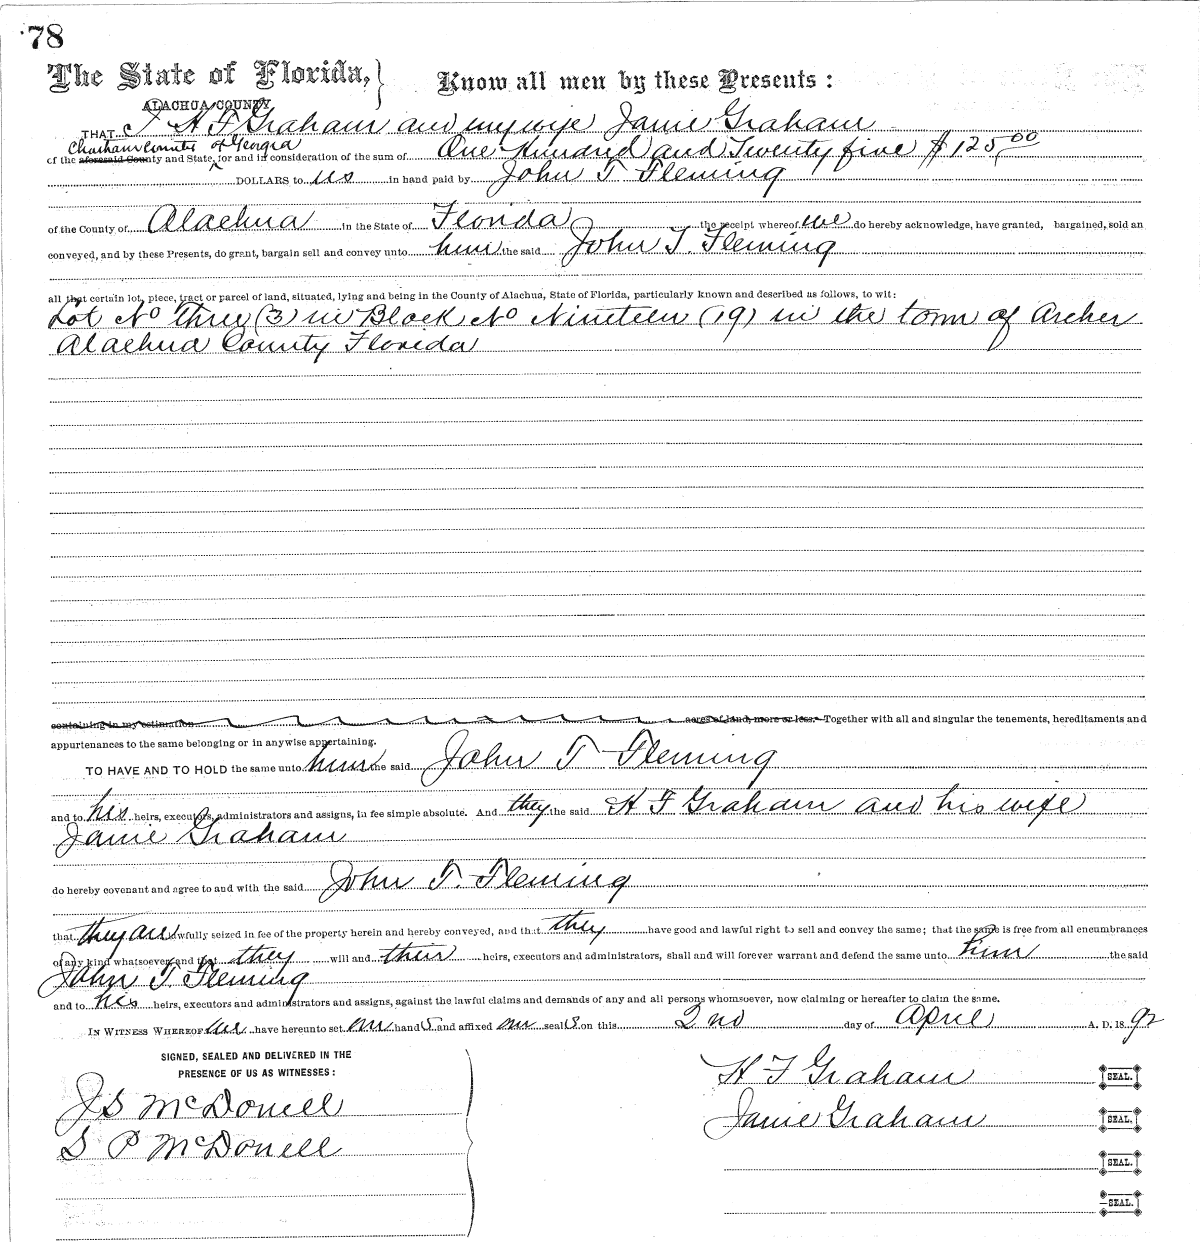 78
The State of Florida,} Know all men by these Presents:
ALACHUA COUNTY
THAT I H F Graham and my wife Janie Graham
Chatham County of Georgia
of the aforesaid County and State, for and in consideration of the sum of One Hundred and Twenty five $125.00
DOLLARS to us in hand paid by John T Fleming
of the County of Alachua in the State of Florida the receipt whereof we do hereby acknowledge, have granted, bargained, sold an
conveyed, and by these Presents, do grant, bargain sell and convey unto him the said John T. Fleming
all that certain lot, piece, tract or parcel of land, situated, lying and being in the County of Alachua, State of Florida, particularly known and described as follows, to wit:
Lot No three (3) in Block No Nineteen (19) in the town of Archer
Alachua County Florida
containing in my estimation acres of land, more or less. Together with all and singular the tenements, hereditaments and
appurtenances to the same belonging or in anywise appertaining.
TO HAVE AND TO HOLD the same unto him the said John T Fleming
and to his heirs, executors, administrators and assigns, in fee simple absolute. And they the said H F Graham and his wife
Janie Graham
do hereby covenant and agree to and with the said John T. Fleming
that they are lawfully seized in fee of the property herein and hereby conveyed, and that they have good and lawful right to sell and convey the same; that the same is free from all encumbrances
of any kind whatsoever, and that they will and their heirs, executors and administrators, shall and will forever warrant and defend the same unto him the said
John T. Fleming
and to his heirs, executors and administrators and assigns, against the lawful claims and demands of any and all persons whomsoever, now claiming or hereafter to claim the same.
IN WITNESS WHEREOF we have hereunto set our hand s and affixed our seal s on this 2nd day of April A. D. 18 92
SIGNED, SEALED AND DELIVERED IN THE
PRESENCE OF US AS WITNESSES:
H F Graham SEAL.
J S McDonell
Janie Graham SEAL.
S P McDonell
SEAL.
SEAL.